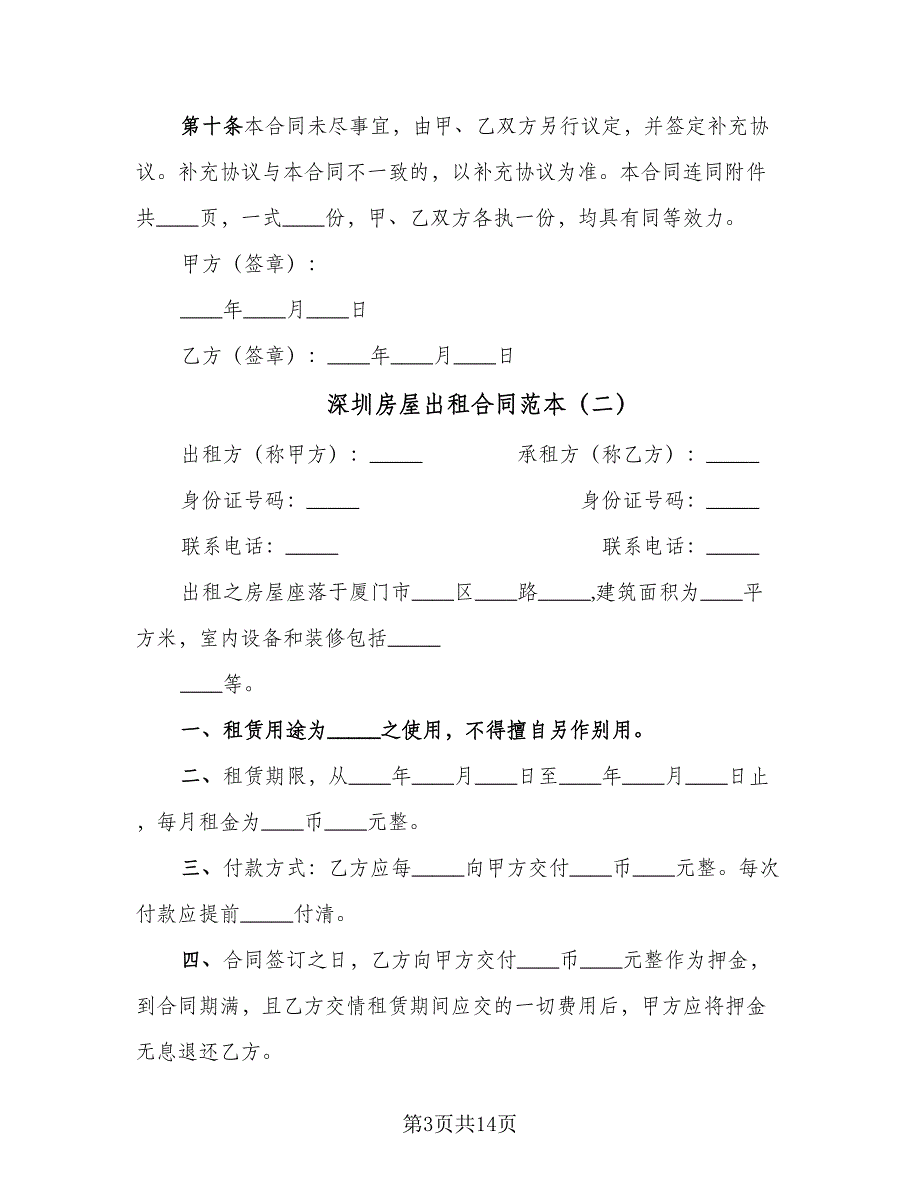 第十条本合同未尽事宜，由甲、乙双方另行议定，并签定补充协
议。补充协议与本合同不一致的，以补充协议为准。本合同连同附件
共____页，一式____份，甲、乙双方各执一份，均具有同等效力。
甲方（签章）：
____年____月____日
乙方（签章）：____年____月____日
深圳房屋出租合同范本（二）
出租方（称甲方）：_____ 承租方（称乙方）：_____
身份证号码：_____ 身份证号码：_____
联系电话：_____ 联系电话：_____
出租之房屋座落于厦门市____区____路_____,建筑面积为____平
方米，室内设备和装修包括_____
____等。
一、租赁用途为_____之使用，不得擅自另作别用。
二、租赁期限，从____年____月____日至____年____月____日止
，每月租金为____币____元整。
三、付款方式：乙方应每_____向甲方交付____币____元整。每次
付款应提前_____付清。
四、合同签订之日，乙方向甲方交付____币____元整作为押金，
到合同期满，且乙方交情租赁期间应交的一切费用后，甲方应将押金
无息退还乙方。
第3页共14页